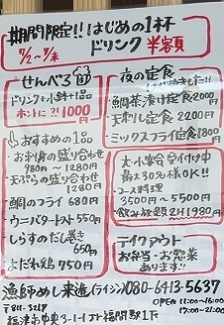 期間限定!! はじめの1杯
ドリンク 半額
せんべろ
ドリンク+小鉢+1品
ホントに?! 1000円
おすすめの1品
お刺身の盛り合わせ
980円〜1280円
天ぷらの盛り合わせ
1280円
鯛のフライ 680円
ウニバタートースト 550円
しらすのだし巻き
650円
よだれ鶏 750円
夜の定食
鯛茶漬け定食 2000円
天ぷら定食 2200円
ミックスフライ定食 1800円
大・小宴会 受付け中
最大30名様OK!!
コース料理
3500円〜5500円
飲み放題 2H 1980円
テイクアウト
お弁当・お惣菜
あります!!
漁師めし来進(ライシン) 080-6413-5637
OPEN 11:00-16:00
17:00-21:00
〒811-3217
福津市中央3-1-1 JT福間駅1F